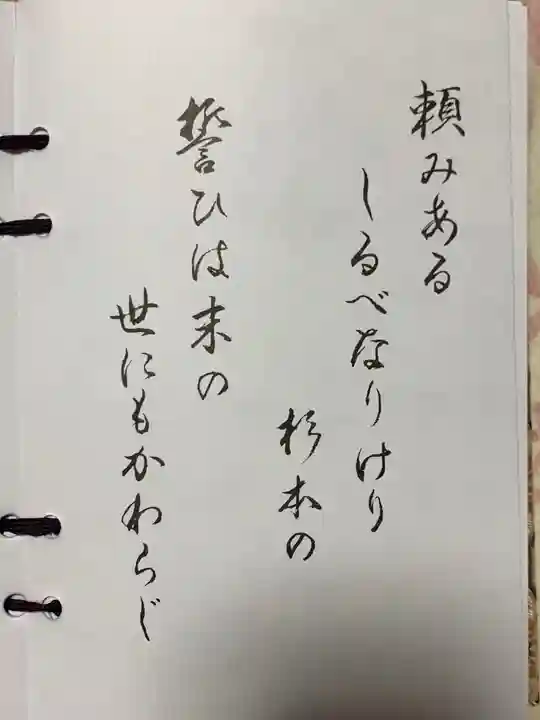 頼みある
しるべなりけり
杉本の
誓ひは末の
世にもかわらじ